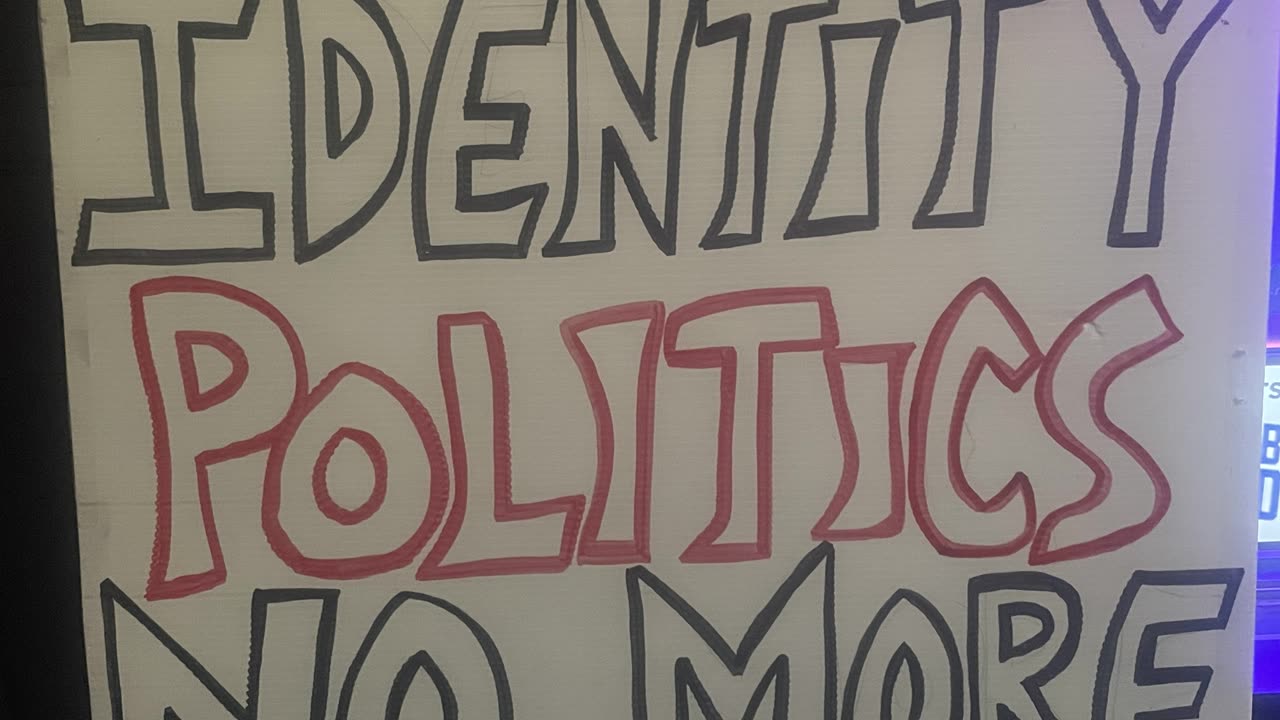 IDENTITY
POLITICS
NO MORE